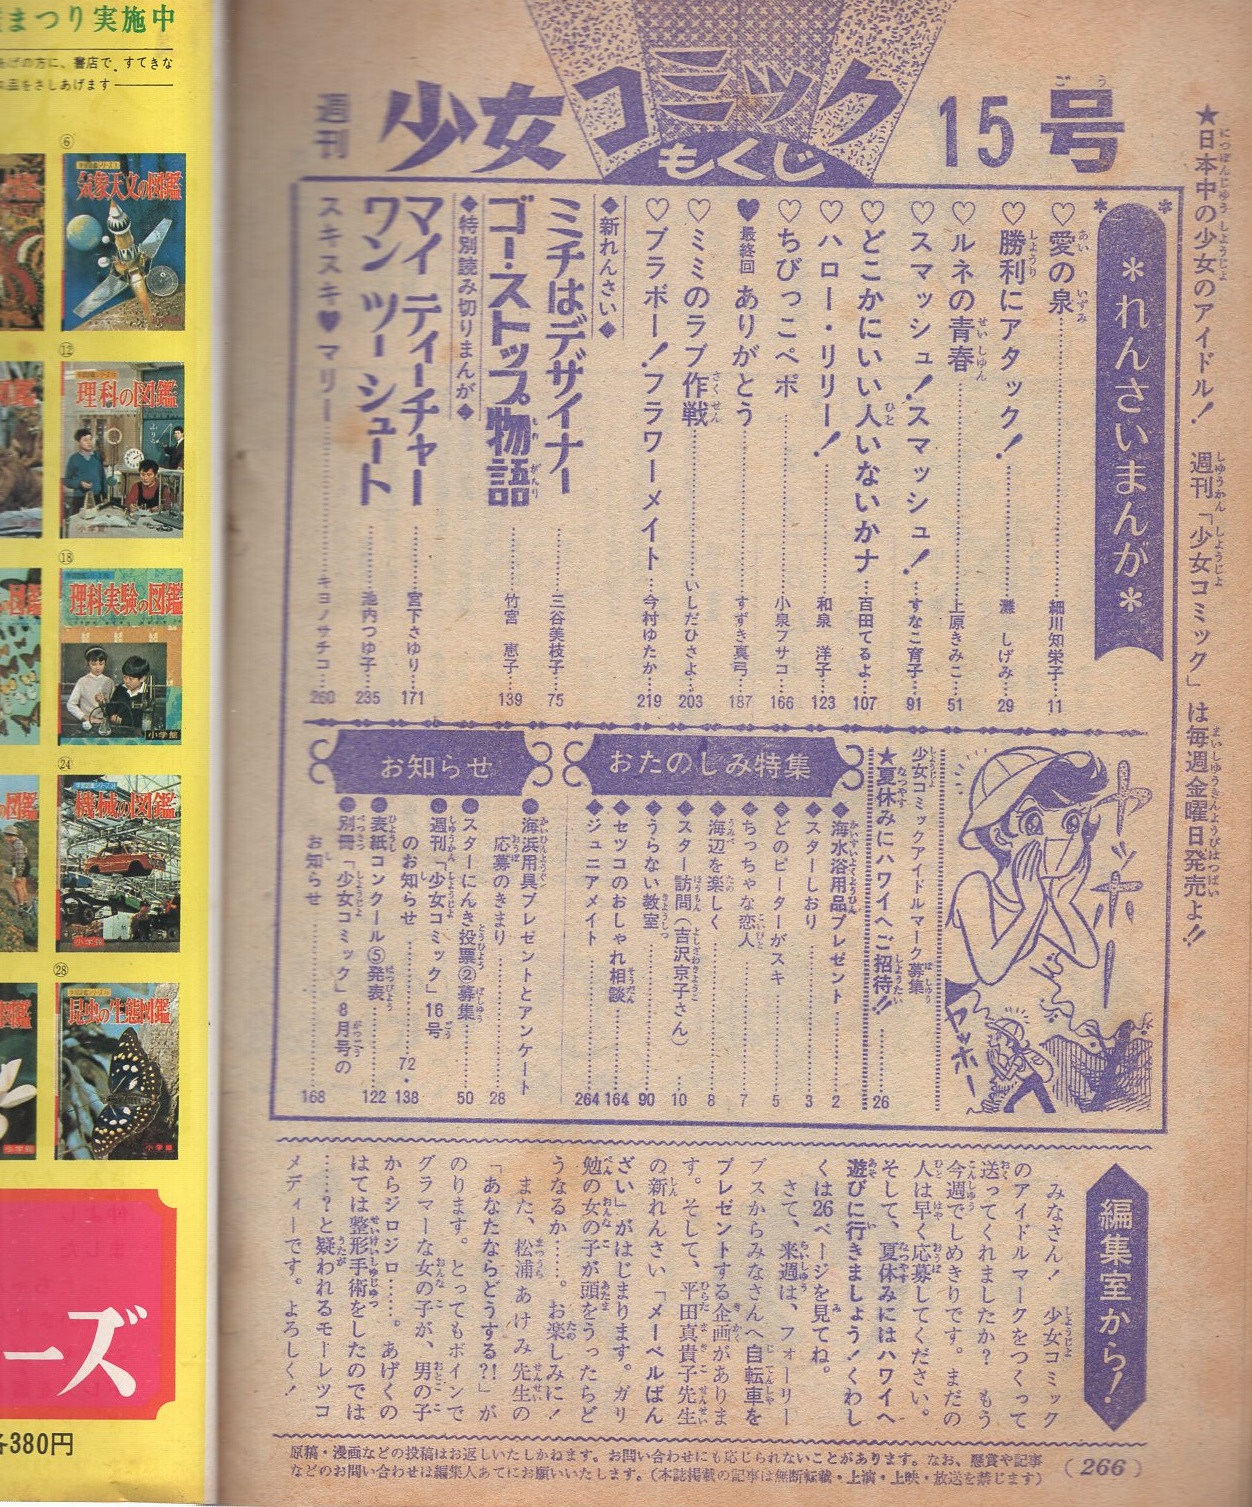 まつり実施中
げの方に、書店で、すてきな
品をさしあげます
⑥
気象天文の図鑑
⑫
理科の図鑑
⑱
理科実験の図鑑
小学館
㉔
機械の図鑑
小学館
㉘
昆虫の生態図鑑
小学館
ーズ
380円
★日本中の少女のアイドル！　週刊「少女コミック」は毎週金曜日発売よ!!
週刊 少女コミック 15号
もくじ
＊れんさいまんが＊
♡愛の泉……細川知栄子…11
♡勝利にアタック！……灘　しげみ…29
♡ルネの青春……上原きみこ…51
♡スマッシュ！スマッシュ！…すなこ育子…91
♡どこかにいい人いないかナ…百田てるよ…107
♡ハロー・リリー！……和泉　洋子…123
♡ちびっこペポ……小泉フサコ…166
♥最終回 ありがとう……すずき真弓…187
♡ミミのラブ作戦……いしだひさよ…203
♡ブラボー！フラワーメイト…今村ゆたか…219
◆新れんさい◆
ミチはデザイナー……三谷美枝子…75
ゴー・ストップ物語……竹宮　恵子…139
◆特別読み切りまんが◆
マイ ティーチャー……宮下さゆり…171
ワン ツー シュート……池内つゆ子…235
スキスキ♥マリー……キヨノサチコ…260
ヤッホー
ヤッホー
少女コミックアイドルマーク募集
★夏休みにハワイへご招待!!……26
おたのしみ特集
◆海水浴用品プレゼント……2
◆スターしおり……3
◆どのピーターがスキ……5
◆ちっちゃな恋人……7
◆海辺を楽しく……8
◆スター訪問（吉沢京子さん）……10
◆うらない教室……90
◆セツコのおしゃれ相談……164
◆ジュニアメイト……264
お知らせ
●海浜用具プレゼントとアンケート
応募のきまり……28
●スターにんき投票②募集……50
●週刊「少女コミック」16号
のお知らせ……72・138
●表紙コンクール⑤発表……122
●別冊「少女コミック」8月号の
お知らせ……168
編集室から！
みなさん！　少女コミック
のアイドルマークをつくって
送ってくれましたか？　もう
今週でしめきりです。まだの
人は早く応募してください。
そして、夏休みにはハワイへ
遊びに行きましょう！くわし
くは26ページを見てね。
さて、来週は、フォーリー
ブスからみなさんへ自転車を
プレゼントする企画がありま
す。そして、平田真貴子先生
の新れんさい「メーベルばん
ざい」がはじまります。ガリ
勉の女の子が頭をうったらど
うなるか……。お楽しみに！
また、松浦あけみ先生の
「あなたならどうする?!」が
のります。とってもボインで
グラマーな女の子が、男の子
からジロジロ……。あげくの
はては整形手術をしたのでは
……？と疑われるモーレツコ
メディーです。よろしく！
原稿・漫画などの投稿はお返しいたしかねます。お問い合わせにも応じられないことがあります。なお、懸賞や記事
などのお問い合わせは編集人あてにお願いいたします。（本誌掲載の記事は無断転載・上演・上映・放送を禁じます）
（266）